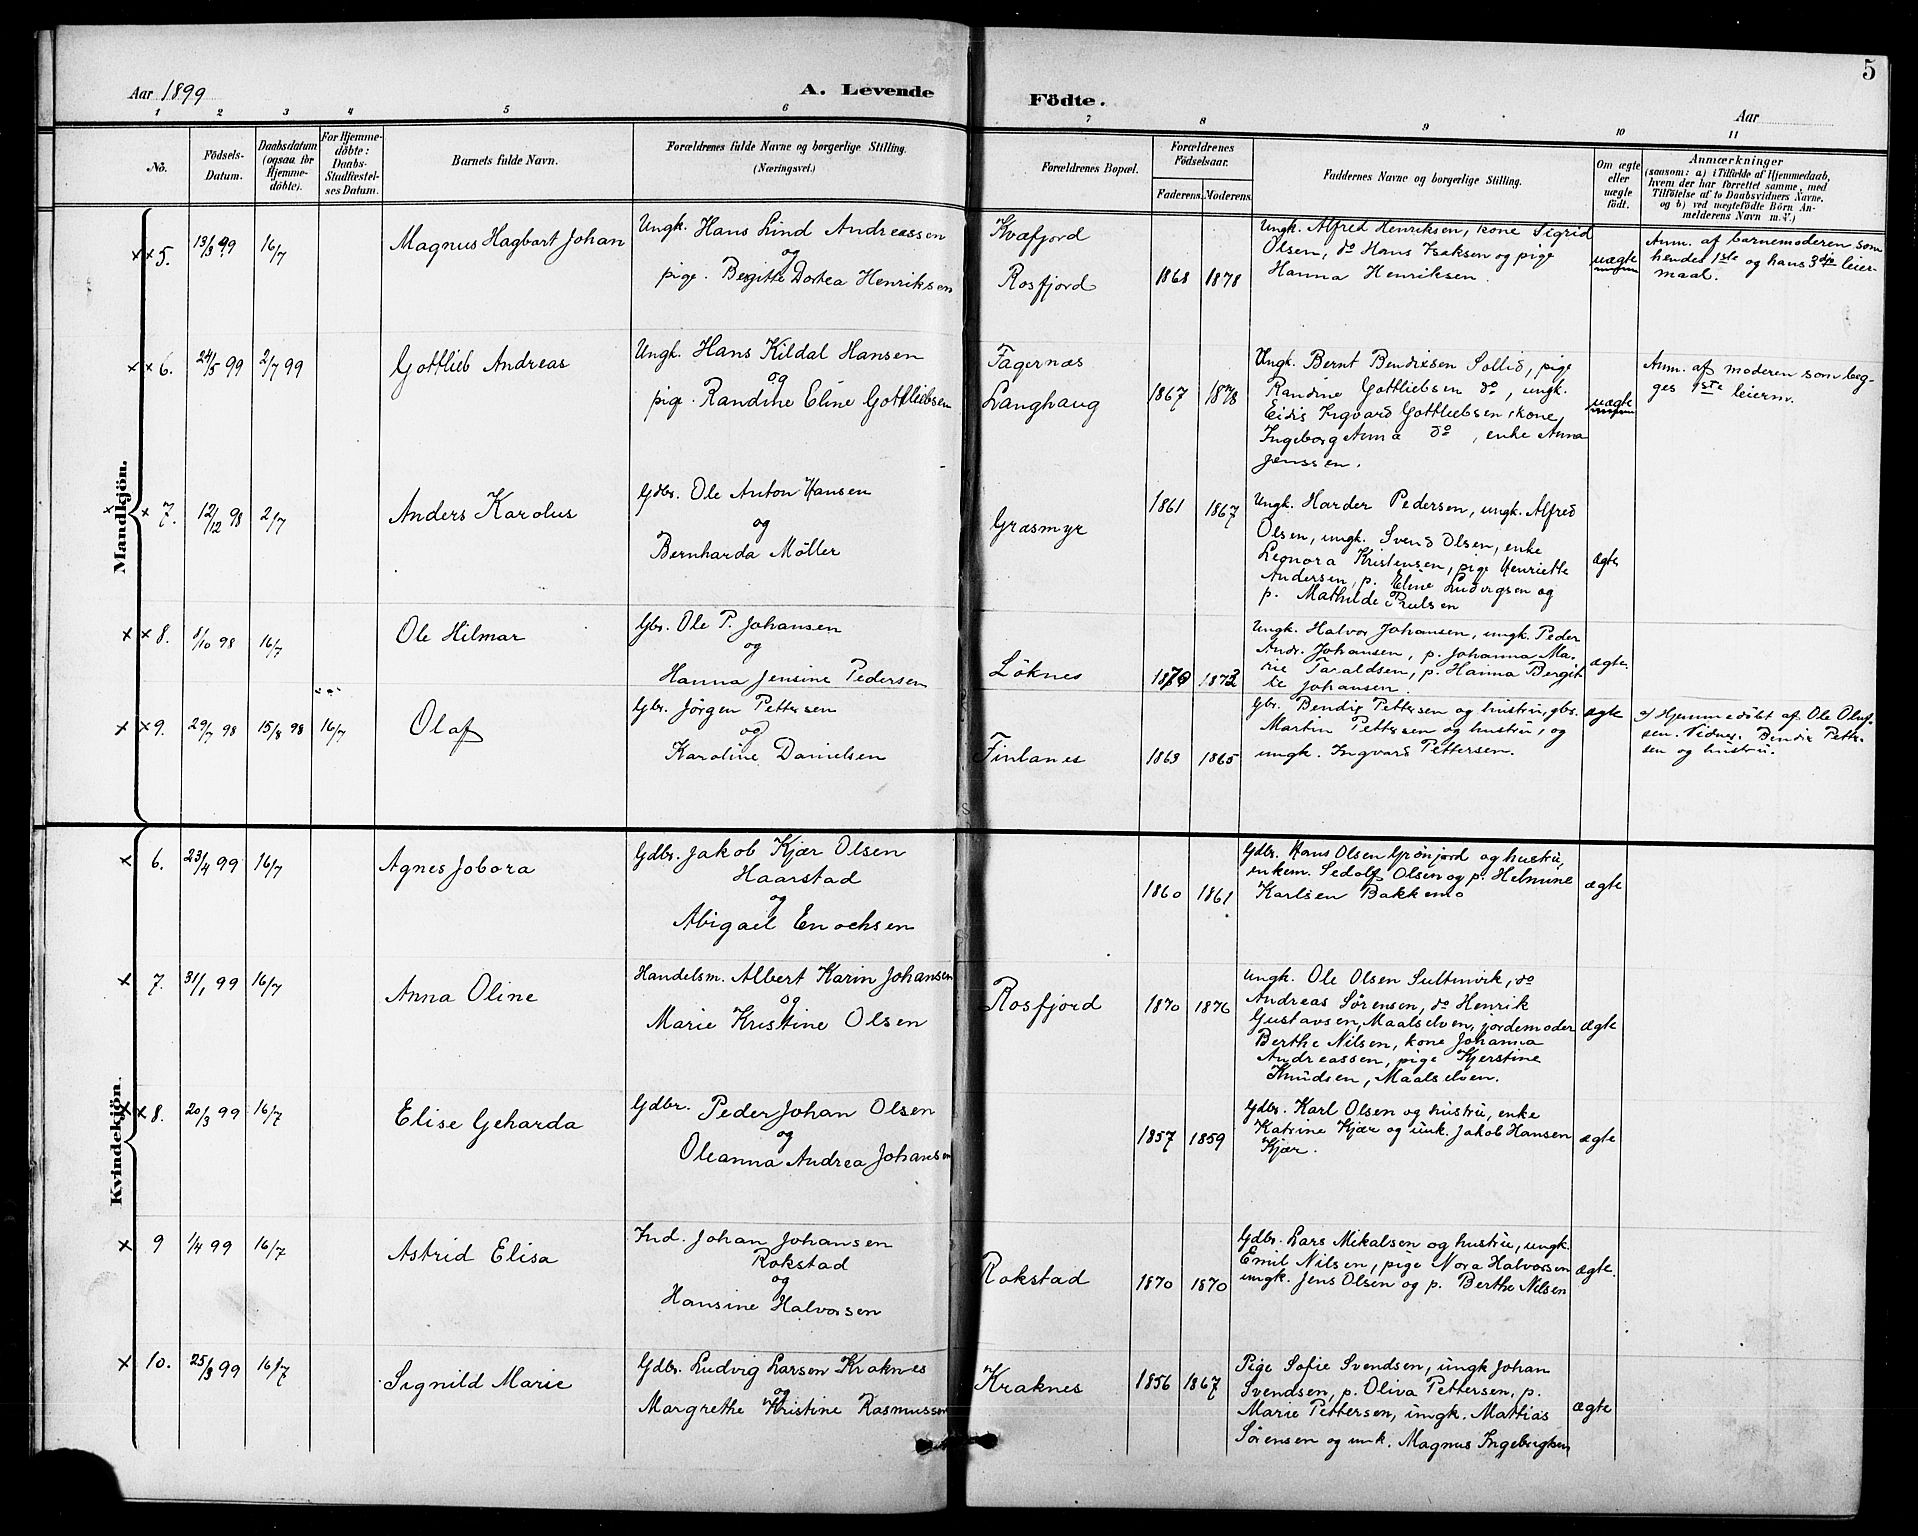 5
Aar 1899
A. Levende
Födte.
Aar
1 2 3 4 5 6 7 8 9 10 11
No.
Födsels-Datum.
Daabsdatum (ogsaa for Hjemme-döbte).
For Hjemme-döbte: Daabs-Stadfæstel-ses Datum.
Barnets fulde Navn.
Forældrenes fulde Navne og borgerlige Stilling.
(Næringsvei.)
Forældrenes Bopæl.
Forældrenes Födselsaar.
Faderens. Moderens.
Faddernes Navne og borgerlige Stilling.
Om ægte eller uægte födt.
Anmærkninger
(saasom: a) i Tilfælde af Hjemmedaab,
hvem der har forrettet samme, med
Tilföielse af to Daabsvidners Navne.
og b) ved uægtefödte Börn An-
melderens Navn m. V.)
Mandkjön.
× × 5. 13/3 99 16/7
Magnus Hagbart Johan
Ungk. Hans Lind Andreassen
og
pige. Bergitte Dortea Henriksen
Kvæfjord
Rosfjord
1868 1878
Ungk. Alfred Henriksen, kone Sigrid
Olsen, do Hans Isaksen og pige
Hanna Henriksen.
uægte
Anm. af barnemoderen som
hendes 1ste og hans 3die leier-
maal.
× × 6. 24/5 99 2/7 99
Gottlieb Andreas
Ungk. Hans Kildal Hansen
og
pige. Randine Eline Gottliebsen
Fagernæs
Langhaug
1867 1878
Ungk. Bernt Bendixsen Sollid, pige
Randine Gottliebsen do, ungk.
Eidis Ingvard Gottliebsen, kone,
Ingeborg Anna do, enke Anna
Jenssen.
uægte
Anm. af moderen som beg-
ges 1ste leierm.
× × 7. 12/12 98 2/7
Anders Karolus
Gdbr. Ole Anton Hansen
og
Bernharda Möller
Græsmyr
1861 1867
Ungk. Harder Pedersen, ungk. Alfred
Olsen, ungk. Svend Olsen, enke
Leonora Kristensen, pige Henriette
Andersen, p. Eline Ludvigsen og
p. Mathilde Paulsen
ægte
× × 8. 8/10 98 16/7
Ole Hilmar
Gbr. Ole P. Johansen
og
Hanna Jensine Pedersen
Löknes
1870 1872
Ungk. Halvor Johansen, ungk. Peder
Andr. Johansen, p. Johanna Ma-
rie Taraldsen, p. Hanna Bergit-
te Johansen.
ægte.
× × 9. 29/7 98 15/8 98 16/7
Olaf
Gbr. Jörgen Pettersen
og
Karoline Danielsen
Finlanes
1863 1865
Gbr. Bendix Pettersen og hustru, gbr.
Martin Pettersen og hustru, og
ungk. Ingvard Pettersen.
ægte
a) Hjemmedöbt af Ole Oluf-
sen. Vidner. Bendix Petter-
sen og hustru.
Kvindekjön.
× 6. 23/4 99 16/7
Agnes Jobora
Gdbr. Jakob Kjær Olsen
Haarstad
og
Abigael Enochsen
1860 1861
Gdbr. Hans Olsen Grönjord og hustru,
enkem. Sedolf Olsen og p. Helmine
Karlsen Bakkemo
ægte
× 7. 31/1 99 16/7
Anna Oline
Handelsm. Albert Karin Johansen
og
Marie Kristine Olsen
Rosfjord
1870 1876
Ungk. Ole Olsen Sultinvik, do
Andreas Sörensen, do Henrik
Gustavsen, Maalselven, jordemoder
Berthe Nilsen, kone Johanna
Andreassen, pige Kjerstine
Knudsen, Maalselven.
ægte
× × 8. 20/3 99 16/7
Elise Geharda
Gdbr. Peder Johan Olsen
og
Oleanna Andrea Johansen
1857 1859
Gdbr. Karl Olsen og hustru, enke
Katrine Kjær og unk. Jakob Hansen
Kjær.
ægte
× 9 1/4 99 16/7
Astrid Elisa
Ind. Johan Johansen
Rokstad
og
Hansine Halvorsen
Rokstad
1870 1870
Gdbr. Lars Mikalsen og hustru, ungk.
Emil Nilsen, pige Nora Halvorsen
ungk. Jens Olsen og p. Berthe Nilsen
ægte.
× 10. 25/3 99 16/7
Signild Marie
Gdbr. Ludvig Larsen Kraknes
og
Margrethe Kristine Rasmussen
Kraknes
1856 1867
Pige Sofie Svendsen, ungk Johan
Svendsen, p. Oliva Pettersen, p.
Marie Pettersen, ungk. Mattias
Sörensen og unk. Magnus Ingebrigtsen
ægte